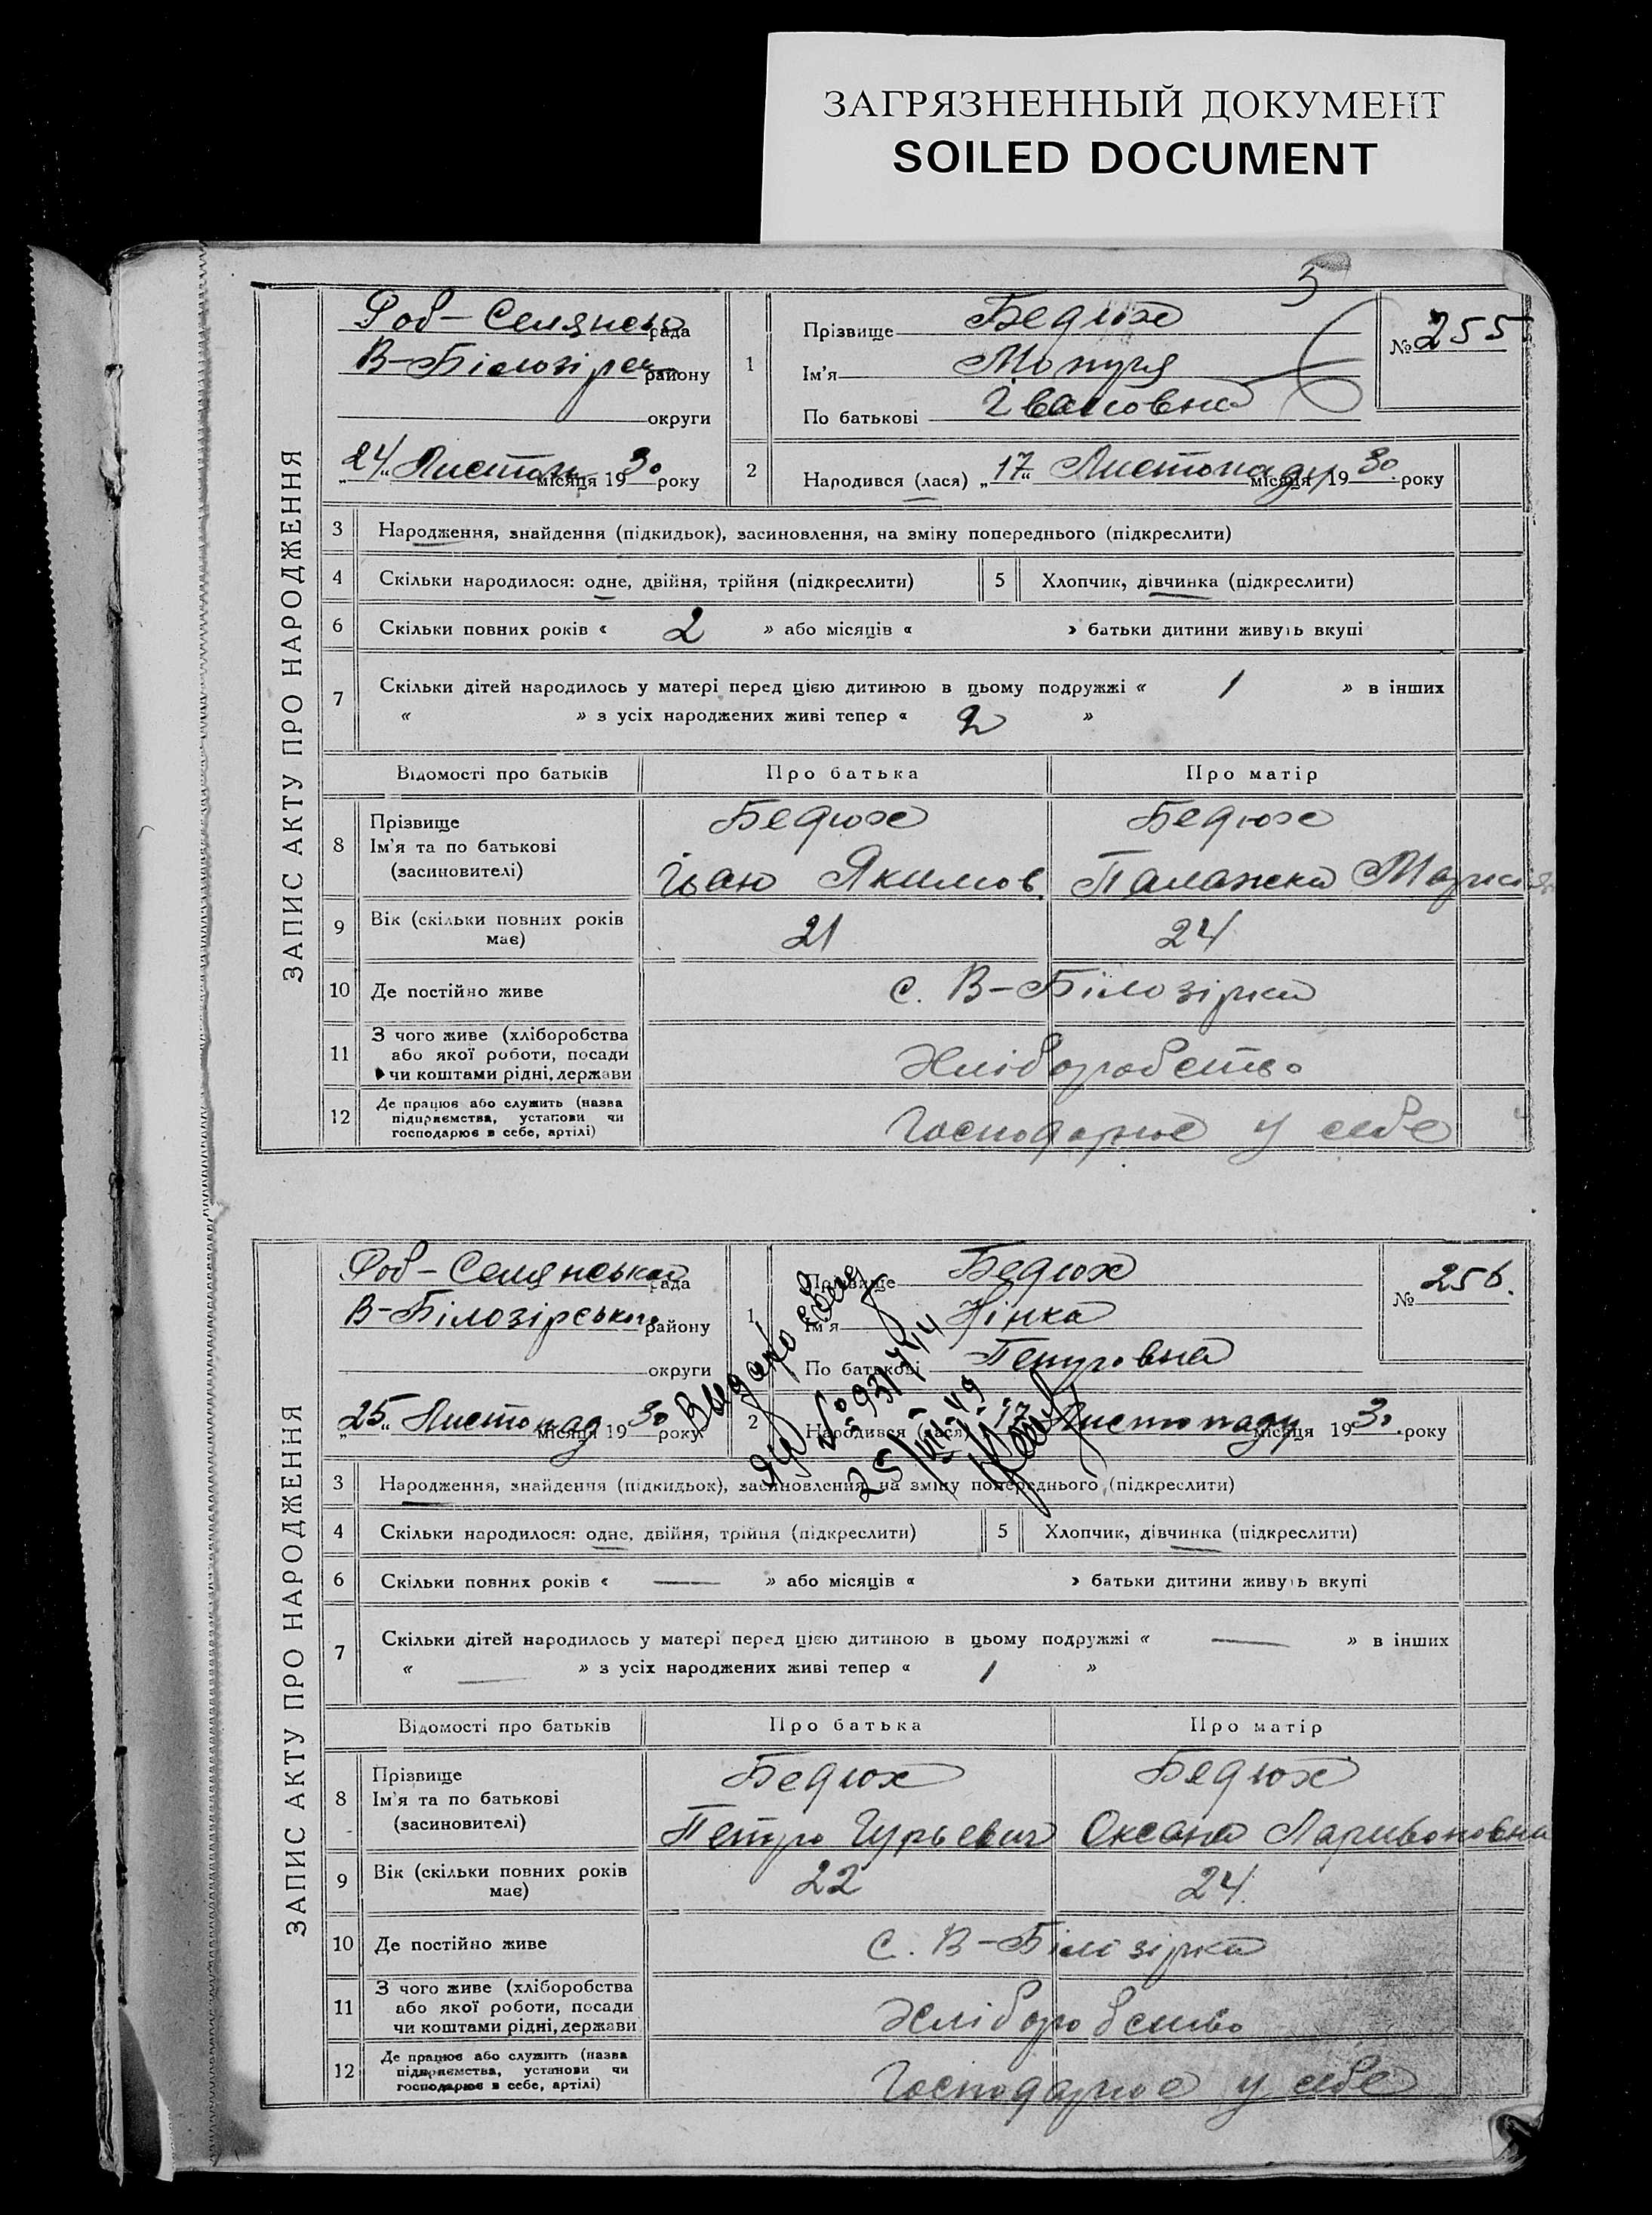 ЗАГРЯЗНЕННЫЙ ДОКУМЕНТ
SOILED DOCUMENT
5
ЗАПИС АКТУ ПРО НАРОДЖЕННЯ
Роб-Селянська рада
В-Білозірськ району
округи
„24“ Листоп місяця 1930 року
1 Прізвище Бедюх
Ім'я
По батькові Івановна
№ 255
2 Народився (лася) „17“ Листопаду місяця 1930 року
3 Народження, знайдення (підкидьок), засиновлення, на зміну попереднього (підкреслити)
4 Скільки народилося: одне, двійня, трійня (підкреслити) 5 Хлопчик, дівчинка (підкреслити)
6 Скільки повних років « 2 » або місяців « » батьки дитини живуть вкупі
7 Скільки дітей народилось у матері перед цією дитиною в цьому подружжі « 1 » в інших
« » з усіх народжених живі тепер « 2 »
Відомості про батьків Про батька Про матір
8 Прізвище
Ім'я та по батькові
(засиновителі)
Бедюх Бедюх
Іван Якимов Палажка
9 Вік (скільки повних років
має)
21 24
10 Де постійно живе с. В-Білозірка
11 З чого живе (хліборобства
або якої роботи, посади
чи коштами рідні, держави
Хліборобство
12 Де працює або служить (назва
підприємства, установи чи
господарює в себе, артілі)
Господарює у себе
ЗАПИС АКТУ ПРО НАРОДЖЕННЯ
Роб-Селянська рада
В-Білозірського району
округи
„25“ Листопад місяця 1930 року
1 Прізвище Бедюх
Ім'я Нінка
По батькові Петровна
№ 256.
Выдано
№ 931714
25/III-49
2 Народився (лася) „17“ Листопаду місяця 1930 року
3 Народження, знайдення (підкидьок), засиновлення, на зміну попереднього (підкреслити)
4 Скільки народилося: одне, двійня, трійня (підкреслити) 5 Хлопчик, дівчинка (підкреслити)
6 Скільки повних років « — » або місяців « » батьки дитини живуть вкупі
7 Скільки дітей народилось у матері перед цією дитиною в цьому подружжі « — » в інших
« — » з усіх народжених живі тепер « 1 »
Відомості про батьків Про батька Про матір
8 Прізвище
Ім'я та по батькові
(засиновителі)
Бедюх Бедюх
Петро Гурьевич Оксана Ларивоновна
9 Вік (скільки повних років
має)
22 24.
10 Де постійно живе с. В-Білозірка
11 З чого живе (хліборобства
або якої роботи, посади
чи коштами рідні, держави
Хліборобство
12 Де працює або служить (назва
підприємства, установи чи
господарює в себе, артілі)
Господарює у себе